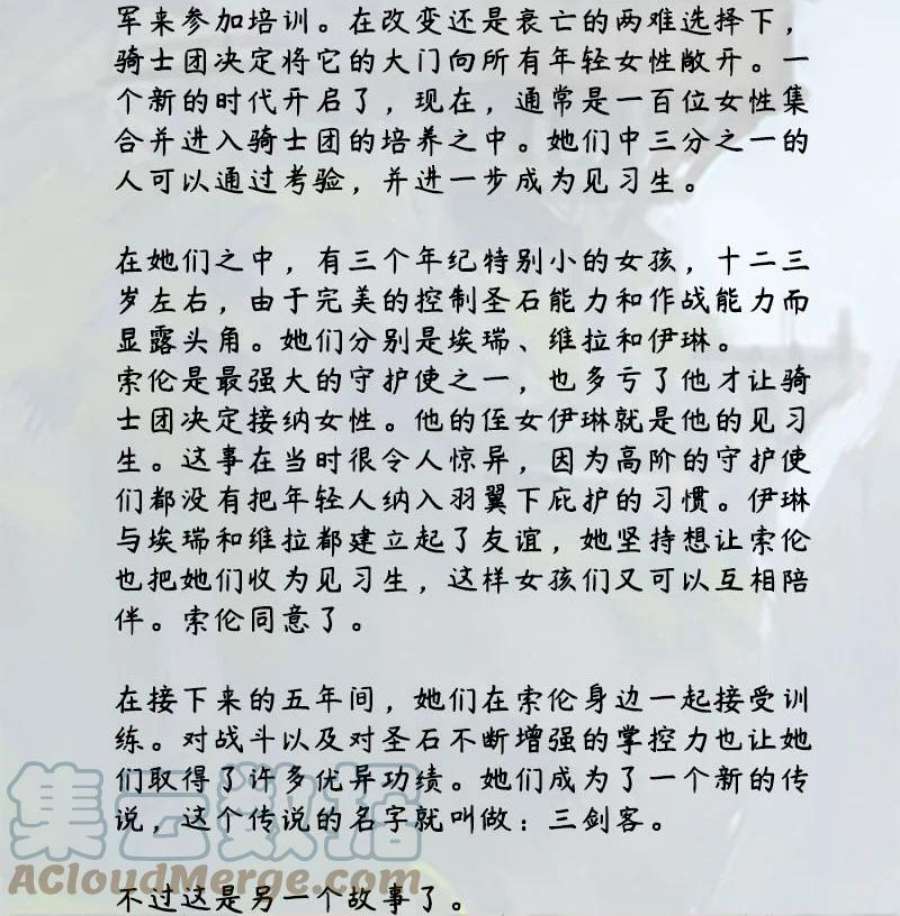 军来参加培训。在改变还是衰亡的两难选择下，
骑士团决定将它的大门向所有年轻女性敞开。一
个新的时代开启了，现在，通常是一百位女性集
合并进入骑士团的培养之中。她们中三分之一的
人可以通过考验，并进一步成为见习生。
在她们之中，有三个年纪特别小的女孩，十二三
岁左右，由于完美的控制圣石能力和作战能力而
显露头角。她们分别是埃瑞、维拉和伊琳。
索伦是最强大的守护使之一，也多亏了他才让骑
士团决定接纳女性。他的侄女伊琳就是他的见习
生。这事在当时很令人惊异，因为高阶的守护使
们都没有把年轻人纳入羽翼下庇护的习惯。伊琳
与埃瑞和维拉都建立起了友谊，她坚持想让索伦
也把她们收为见习生，这样女孩们又可以互相陪
伴。索伦同意了。
在接下来的五年间，她们在索伦身边一起接受训
练。对战斗以及对圣石不断增强的掌控力也让她
们取得了许多优异功绩。她们成为了一个新的传
说，这个传说的名字就叫做：三剑客。
集云数据
ACloudMerge.com
不过这是另一个故事了。